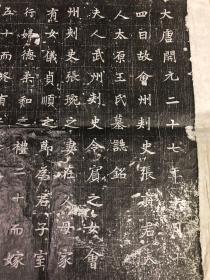 大唐開元二十七年
四日故會州刺史張府君夫
人太原王氏墓誌銘
夫人武州刺史令賓之女會
州刺史張琬之妻在人母家
有女儀貞順之節居君子室
行婦德柔和之禮二十而嫁
五十而終